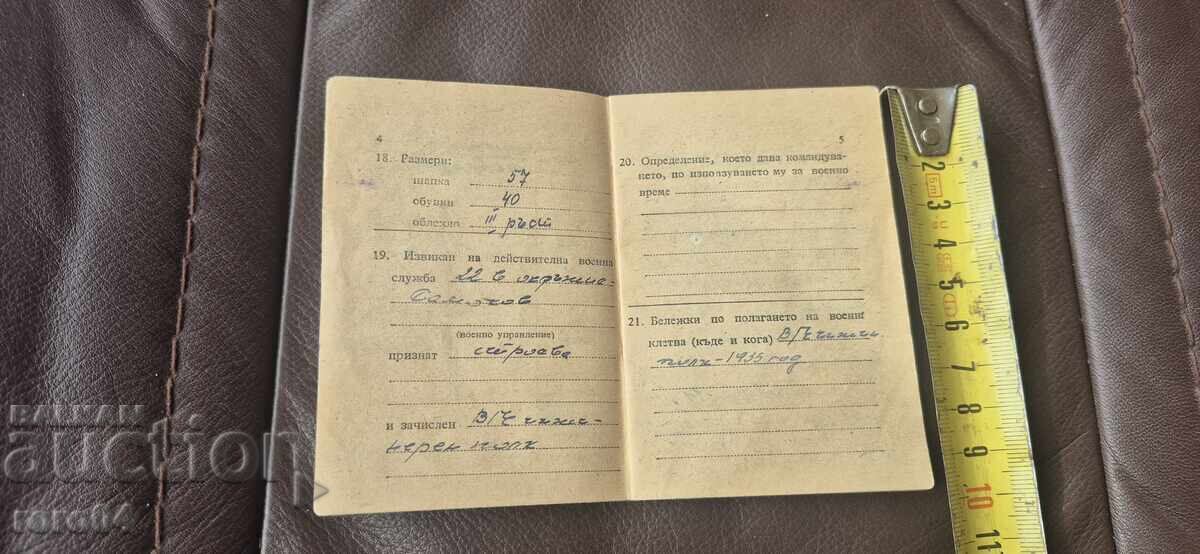 4
18. Размери:
шапка 57
обувки 40
облекло III ръст
19. Извикан на действителна военна
служба 22 в окръжие-
Самоков
(военно управление)
признат строева
и зачислен В/Ч инже-
нерен полк
5
20. Определение, което дава командува-
нето, по използуването му за военно
време
21. Бележки по полагането на военна
клетва (къде и кога) В/Ч инжен.
полк-1955 год
BALKAN
auction
roro04
2
3
4
5
6
7
8
9
10